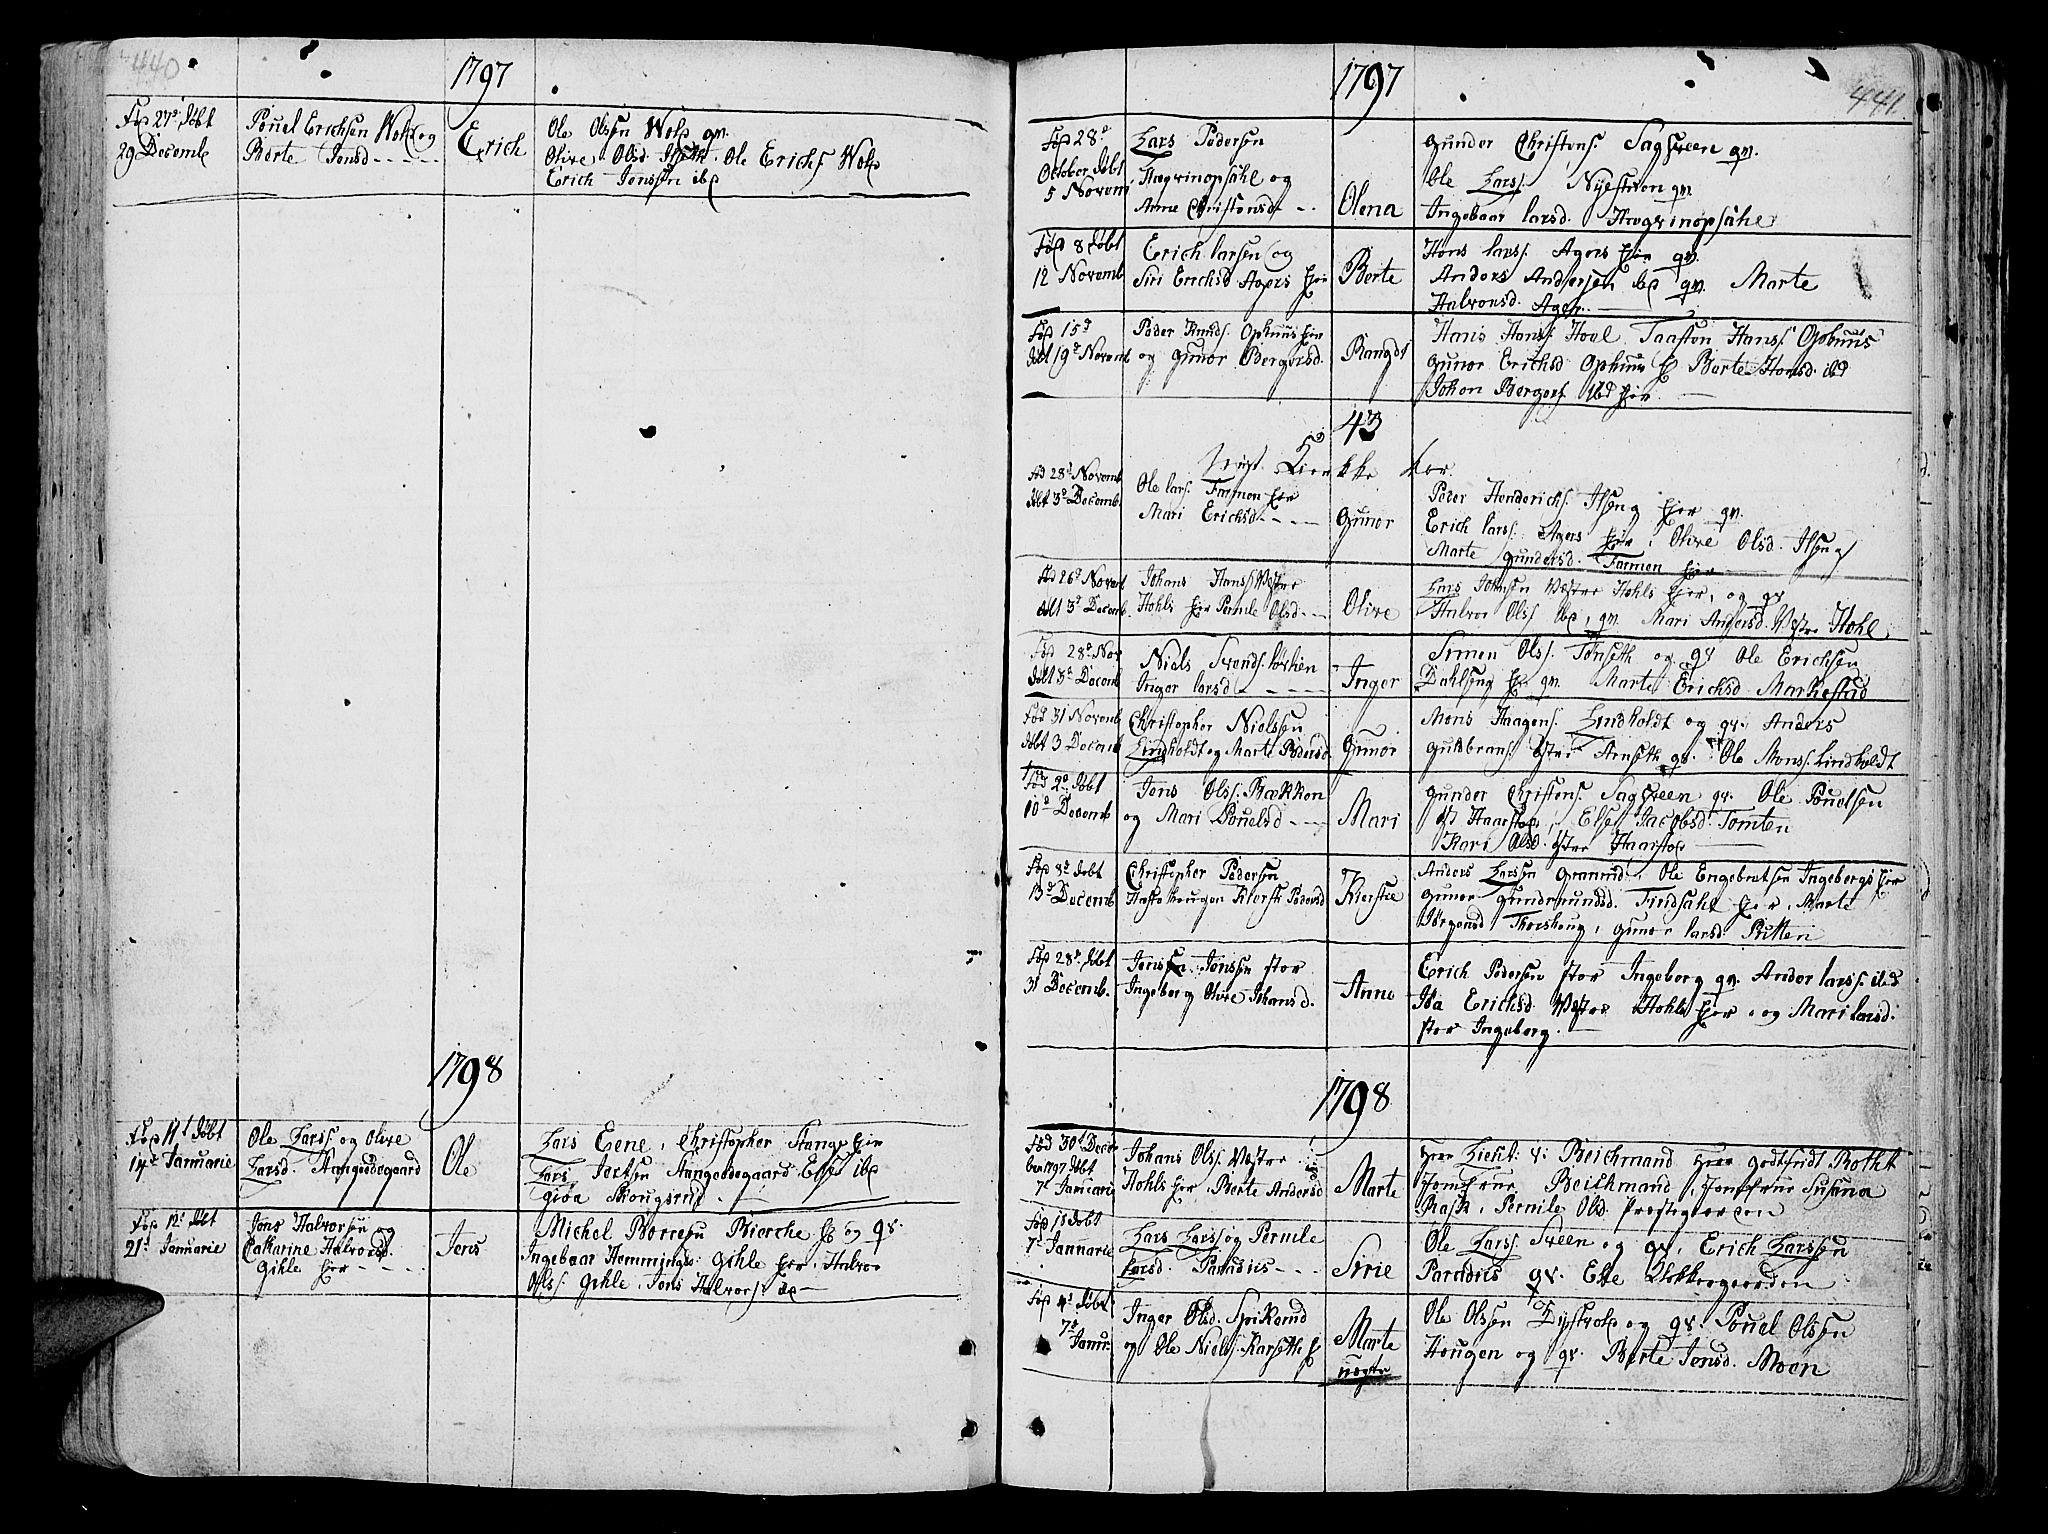 440
1797
Fød 27de Döbt
29 Decemb
Pouel Erichsen Wold og
Berte Jensd
Erich
Ole Olssen Wold qv.
Olive Olsd. Ole Erichs Wold
Erich Jenssen ibd
1798
Fød 11t Döbt
14de Januarie
Ole Larss og Olive
Larsd. Aangaardsgaard
Ole
Lars Eene, Christopher Stange eier
Lars Joctsen Else ibd
Giøa Skougsrud
Fød 12t döbt
21t Januarie
Jens Halvorsen og
Catharine Halvorsd.
Gihle eier
Jens
Michel Borresen Biercke E og qv.
Ingebaar Hemmings. Gihle eier, Halvor
Olss. Gihle, Jens Halvorss. ibd
1797
441
Fød 28d
October döbt
5 Novem
Lars Pedersen
og
Anne Christensd
Olena
Gunder Christens. Sagsveen qv.
Ole Larss. Nyestuen qv
Ingebaar Larsd.
Fød 8 Döbt
12 Novemb
Erich Larsen og
Siri Erichsd Agers Eier
Berte
Hans Larss. Agers Eier qv.
Anders Andersen ibd qv. Marte
Halvorsd. Ager
Fød 15d
döbt 19d Novemb
Peder Knuds. Ophuus eier
og Gunor Bergersd.
Rangdi
Hans Hanss. Hoel. Taasten Hanss. Ophuus
Gunor Erichsd Ophuus E Berte Hansd. ibd
Johan Bergers ibd eier
43
Fød 28d Novemb
döbt 3d Decemb.
Ole Lars. Farmen Eier
Mari Erichsd
Gunor
Peder Henderichs. Ilseng Eier qv.
Erich Larss. Agers Eier, Olive Olsd. Ilseng
Marte Gundersd. Farmen Eier
Fød 26d Novem
döbt 3d Decemb.
Johans Hanss. Vester
Hohls Eier Pernile Olsd
Olive
Lars Johnsen Vester Hohls Eier, og qv
Halvor Olss ibd, qv. Mari Andersd. Vestre Hohl
Fød 28d Nov
döbt 3d Decemb
Niels Svends.
Inger Larsd
Inger
Simen Olss. Tønseth og qv Ole Erichsen
Dahlseng E qv. Marte Erichsd. Markestad
Fød 31 Novemb
döbt 3 Decemb
Christopher Nielssen
Lindholdt og Marte Pedersd
Gunor
Mons Haagens. Lindholdt og qv. Anders
Guldbrans. Øster Arnseth qv. Ole Monss. Lindholdt
Fød 2d döbt
10d Decemb
Jens Olss. Bækken
og Mari Pouelsd
Mari
Gunder Christens. Sagsveen qv. Ole Pouelsen
Øst Haarstad, Else Jacobsd. Tomten
Kari Olsd. Øster Haarstad
Fød 8d döbt
13d Decemb
Christopher Pedersen
Kierst. Pedersd
Kierstie
Anders Larsen Grønrud. Ole Engebretsen Ingebergs eier
Gunor Gundmundsd. Findsahl Eier, Marte
Jörgensd Thorshoug, Gunor Larsd.
Fød 28d döbt
31 Decemb.
Jens Jenssen stor
Ingeberg Olive Johansd.
Anne
Erich Pedersen stor Ingeberg qv. Ander Larss. ibd
Ida Erichsd Vester Hohls Eier og Mari Larsd.
stor Ingeberg.
1798
Fød 30t Decem
ber 1797 döbt
7t Januarie
Johans Olss. Vester
Hohls eier, Berte Andersd
Marte
Herr Lieut: v: Beichmand Herr Godtfridt Bothe
Jomfrue Beichmand, Jomfrue Susana
Rask, Pernile Olsd. Prestegaarden
Fød 1t döbt
7t Januarie
Lars Larss og Pernile
Larsd. Paradiis
Sirie
Ole Larss Sveen og qv. Erich Larssen
Paradiis qv. Else Klokkergaarden
Fød 4t döbt
7de Janu.
Inger Olsd. Spikerud
og Ole Niels. Karseth E
Marte
uægte
Ole Olssen Dystvold og qv. Pouel Olssen
Hougen og qv. Berte Jensd. Moen